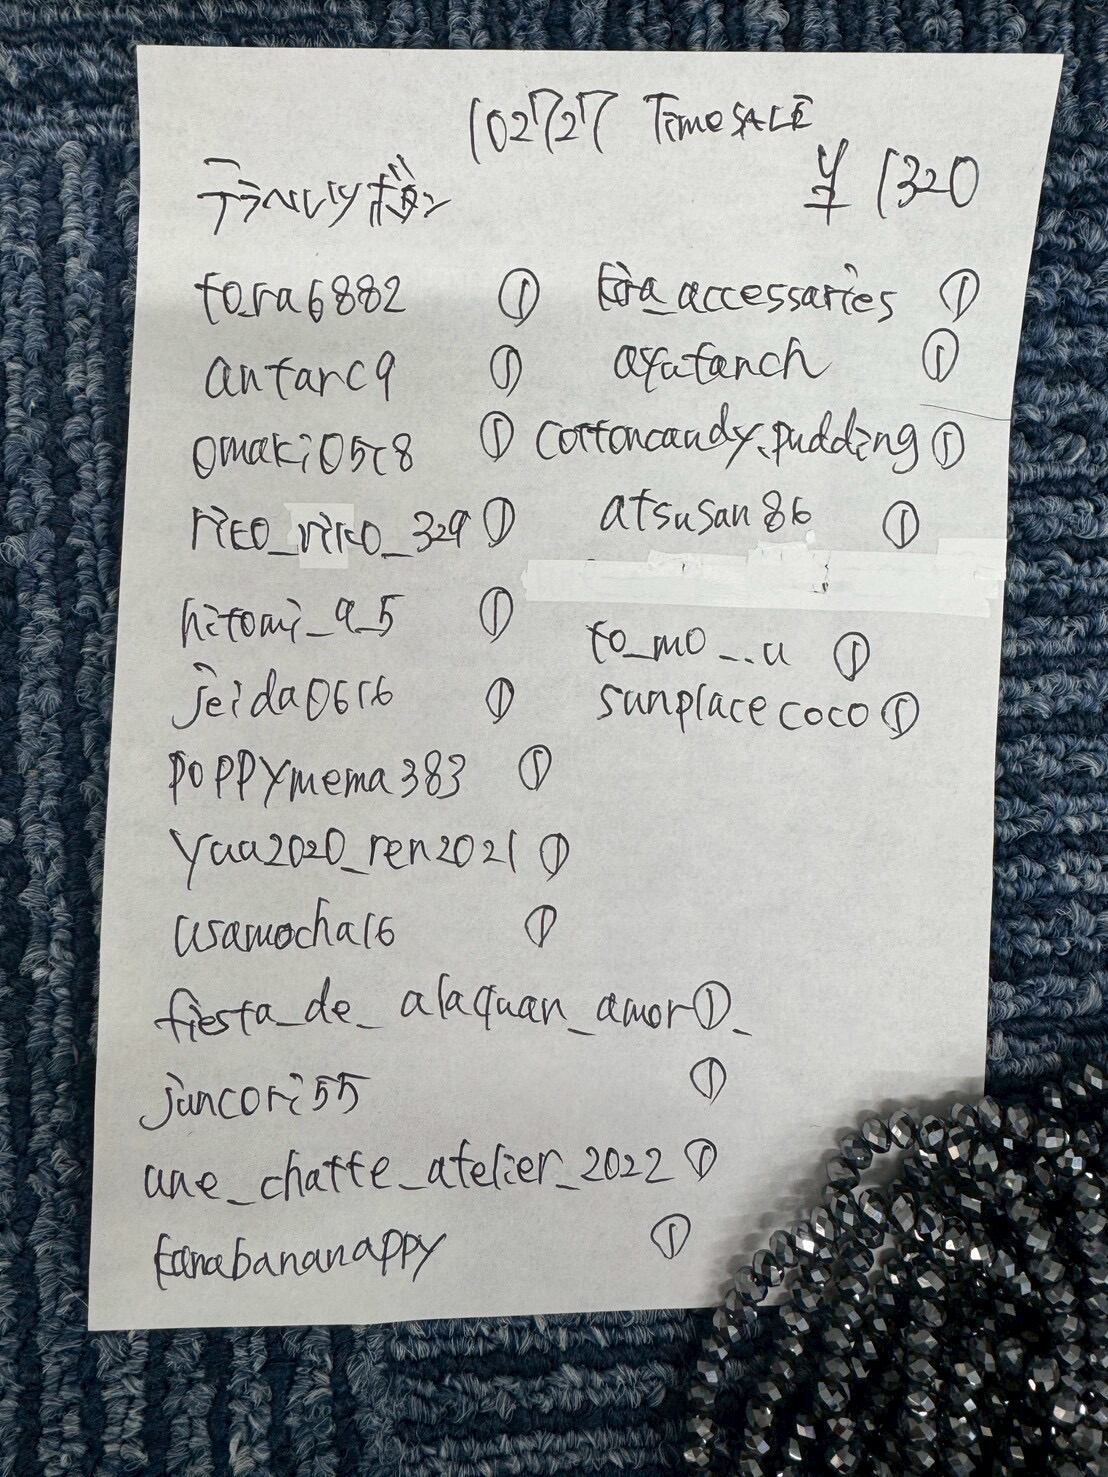 102727 Timesale
デラベルツボタン ¥1320
tora6882 ①
antarc9 ①
omaki0518 ①
rico_rico_329 ①
hitomi_9_5 ①
jeida0616 ①
poppymema383 ①
yaa2020_ren2021 ①
usamocha16 ①
fiesta_de_alaquan_amor①_
juncori55 ①
une_chatte_atelier_2022 ①
kanabananappy ①
kira_accessaries ①
ayatanch ①
cottoncandy.pudding ①
atsusan86 ①
to_mo_..u ①
sunplacecoco ①